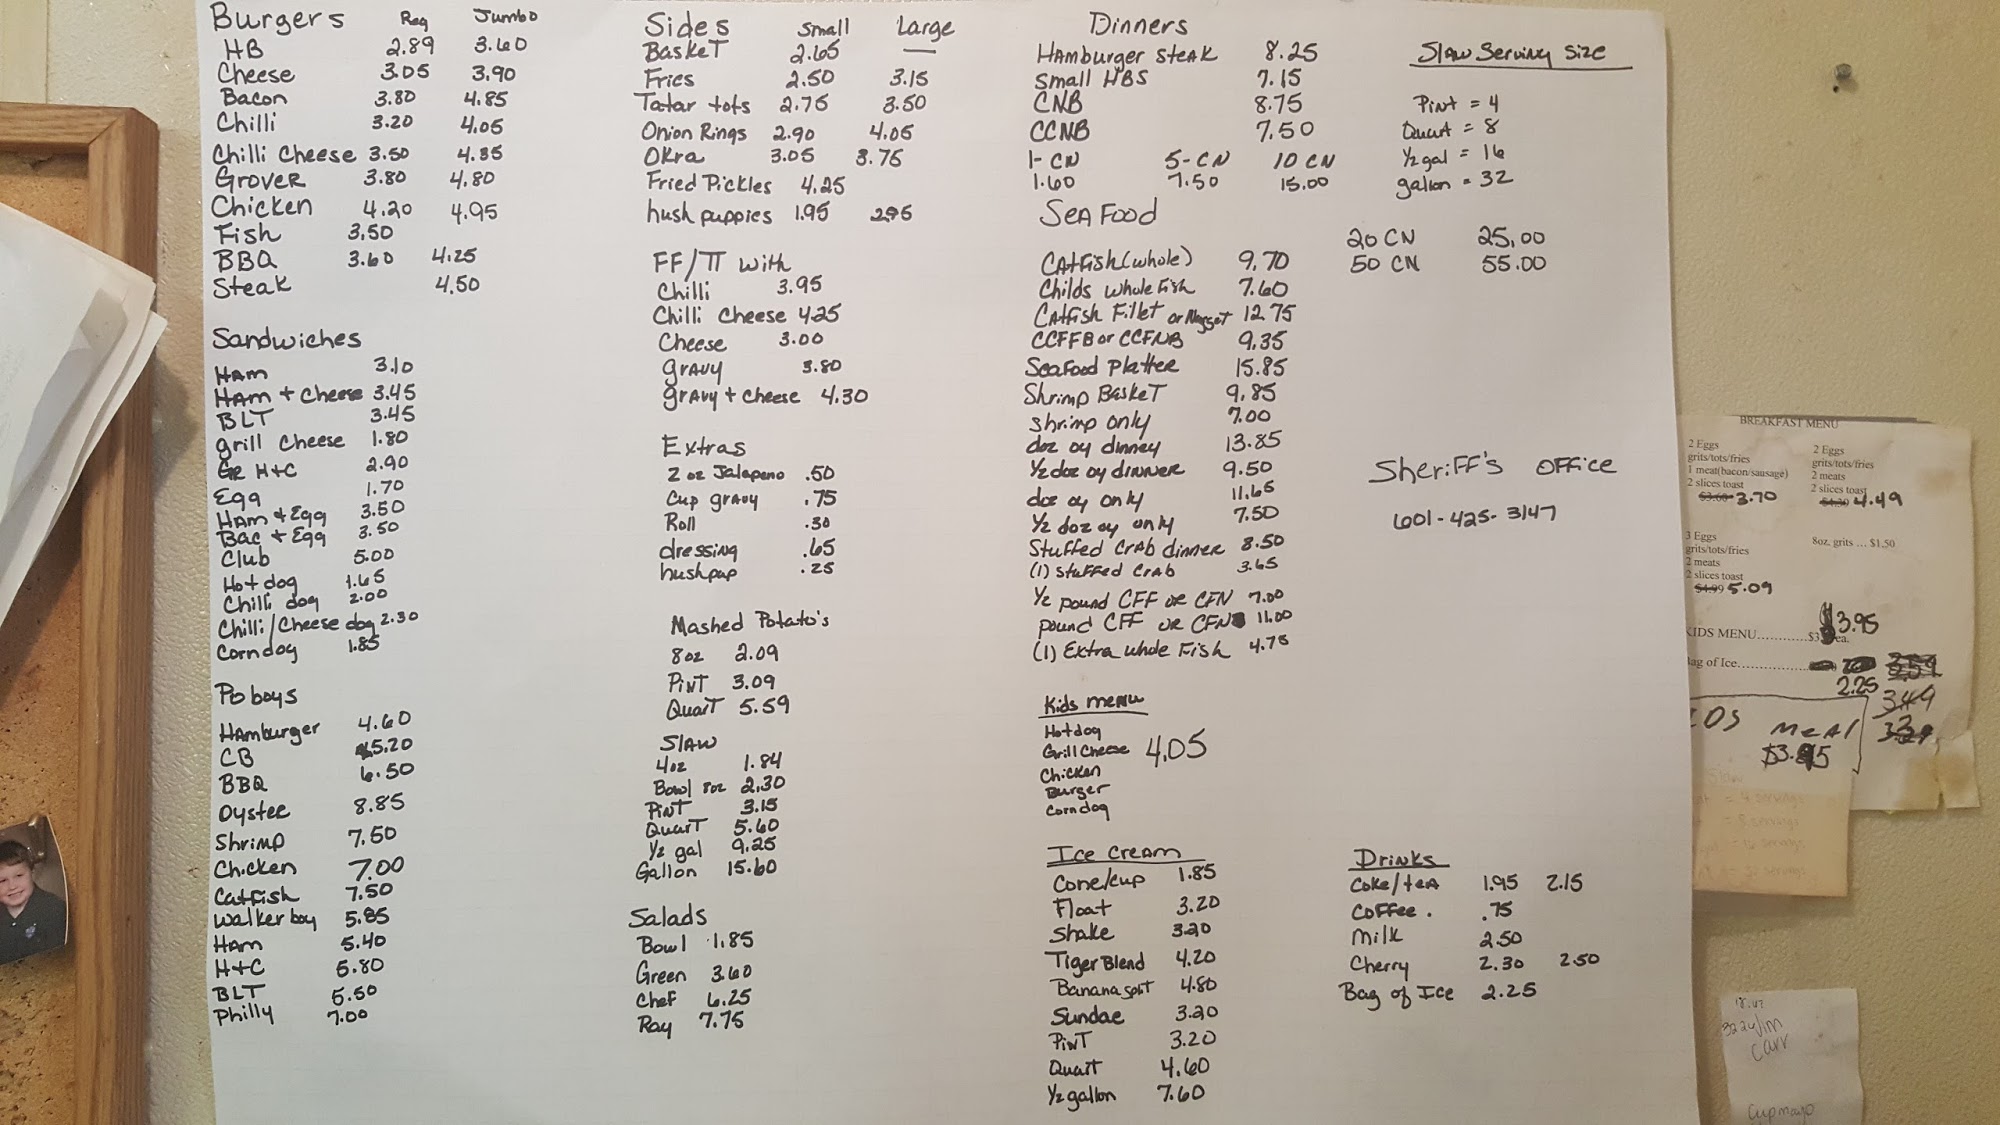 Burgers Reg Jumbo
HB 2.89 3.60
Cheese 3.05 3.90
Bacon 3.80 4.85
Chilli 3.20 4.05
Chilli Cheese 3.50 4.85
Grover 3.80 4.80
Chicken 4.20 4.95
Fish 3.50
BBQ 3.60 4.25
Steak 4.50
Sandwiches
Ham 3.10
Ham + Cheese 3.45
BLT 3.45
grill Cheese 1.80
GR H+C 2.90
Egg 1.70
Ham + Egg 3.50
Bac + Egg 3.50
Club 5.00
Hot dog 1.65
Chilli dog 2.00
Chilli/Cheese dog 2.30
Corndog 1.85
Po boys
Hamburger 4.60
CB 5.20
BBQ 6.50
Oyster 8.85
Shrimp 7.50
Chicken 7.00
Catfish 7.50
Walker boy 5.85
Ham 5.40
H+C 5.80
BLT 5.50
Philly 7.00
Sides Small Large
Basket 2.65 —
Fries 2.50 3.15
Tatar tots 2.75 3.50
Onion Rings 2.90 4.05
Okra 3.05 3.75
Fried Pickles 4.25
hush puppies 1.95 2.95
FF/TT with
Chilli 3.95
Chilli Cheese 4.25
Cheese 3.00
gravy 3.80
gravy + Cheese 4.30
Extras
2 oz Jalapeno .50
Cup gravy .75
Roll .30
dressing .65
hushpup .25
Mashed Potato's
8oz 2.09
Pint 3.09
Quart 5.59
Slaw
4oz 1.84
Bowl 8oz 2.30
Pint 3.15
Quart 5.60
1/2 gal 9.25
Gallon 15.60
Salads
Bowl 1.85
Green 3.60
Chef 6.25
Ray 7.75
Dinners
Hamburger Steak 8.25
Small HBS 7.15
CNB 8.75
CCNB 7.50
1-CN 5-CN 10 CN
1.60 7.50 15.00
Sea Food
Catfish (whole) 9.70
Childs whole Fish 7.60
Catfish Fillet or Nugget 12.75
CCFFB or CCFNB 9.35
Seafood Platter 15.85
Shrimp Basket 9.85
shrimp only 7.00
doz oy dinney 13.85
1/2 doz oy dinner 9.50
doz oy only 11.65
1/2 doz oy only 7.50
Stuffed Crab dinner 8.50
(1) stuffed Crab 3.65
1/2 pound CFF or CFN 7.00
pound CFF or CFN 11.00
(1) Extra whole Fish 4.75
Kids menu
Hotdog
Grill Cheese 4.05
Chicken
Burger
Corndog
Ice Cream
Cone/cup 1.85
Float 3.20
Shake 3.20
Tiger Blend 4.20
Banana split 4.80
Sundae 3.20
Pint 3.20
Quart 4.60
1/2 gallon 7.60
Slaw Serving Size
Pint = 4
Quart = 8
1/2 gal = 16
gallon = 32
20 CN 25.00
50 CN 55.00
Sheriff's Office
601-425-3147
Drinks
Coke/tea 1.95 2.15
Coffee . .75
Milk 2.50
Cherry 2.30 2.50
Bag of Ice 2.25
BREAKFAST MENU
2 Eggs
grits/tots/fries
1 meat(bacon/sausage)
2 slices toast
$3.60 3.70
2 Eggs
grits/tots/fries
2 meats
2 slices toast
$4.39 4.49
3 Eggs
grits/tots/fries
2 meats
2 slices toast
$4.99 5.09
8oz. grits ... $1.50
$3.95
KIDS MENU............$3 ea.
Bag of Ice
2.25
3.49
Meal
$3.95
Slaw
= 4 servings
= 8 servings
= 16 servings
Jim
Carr
Cup mayo